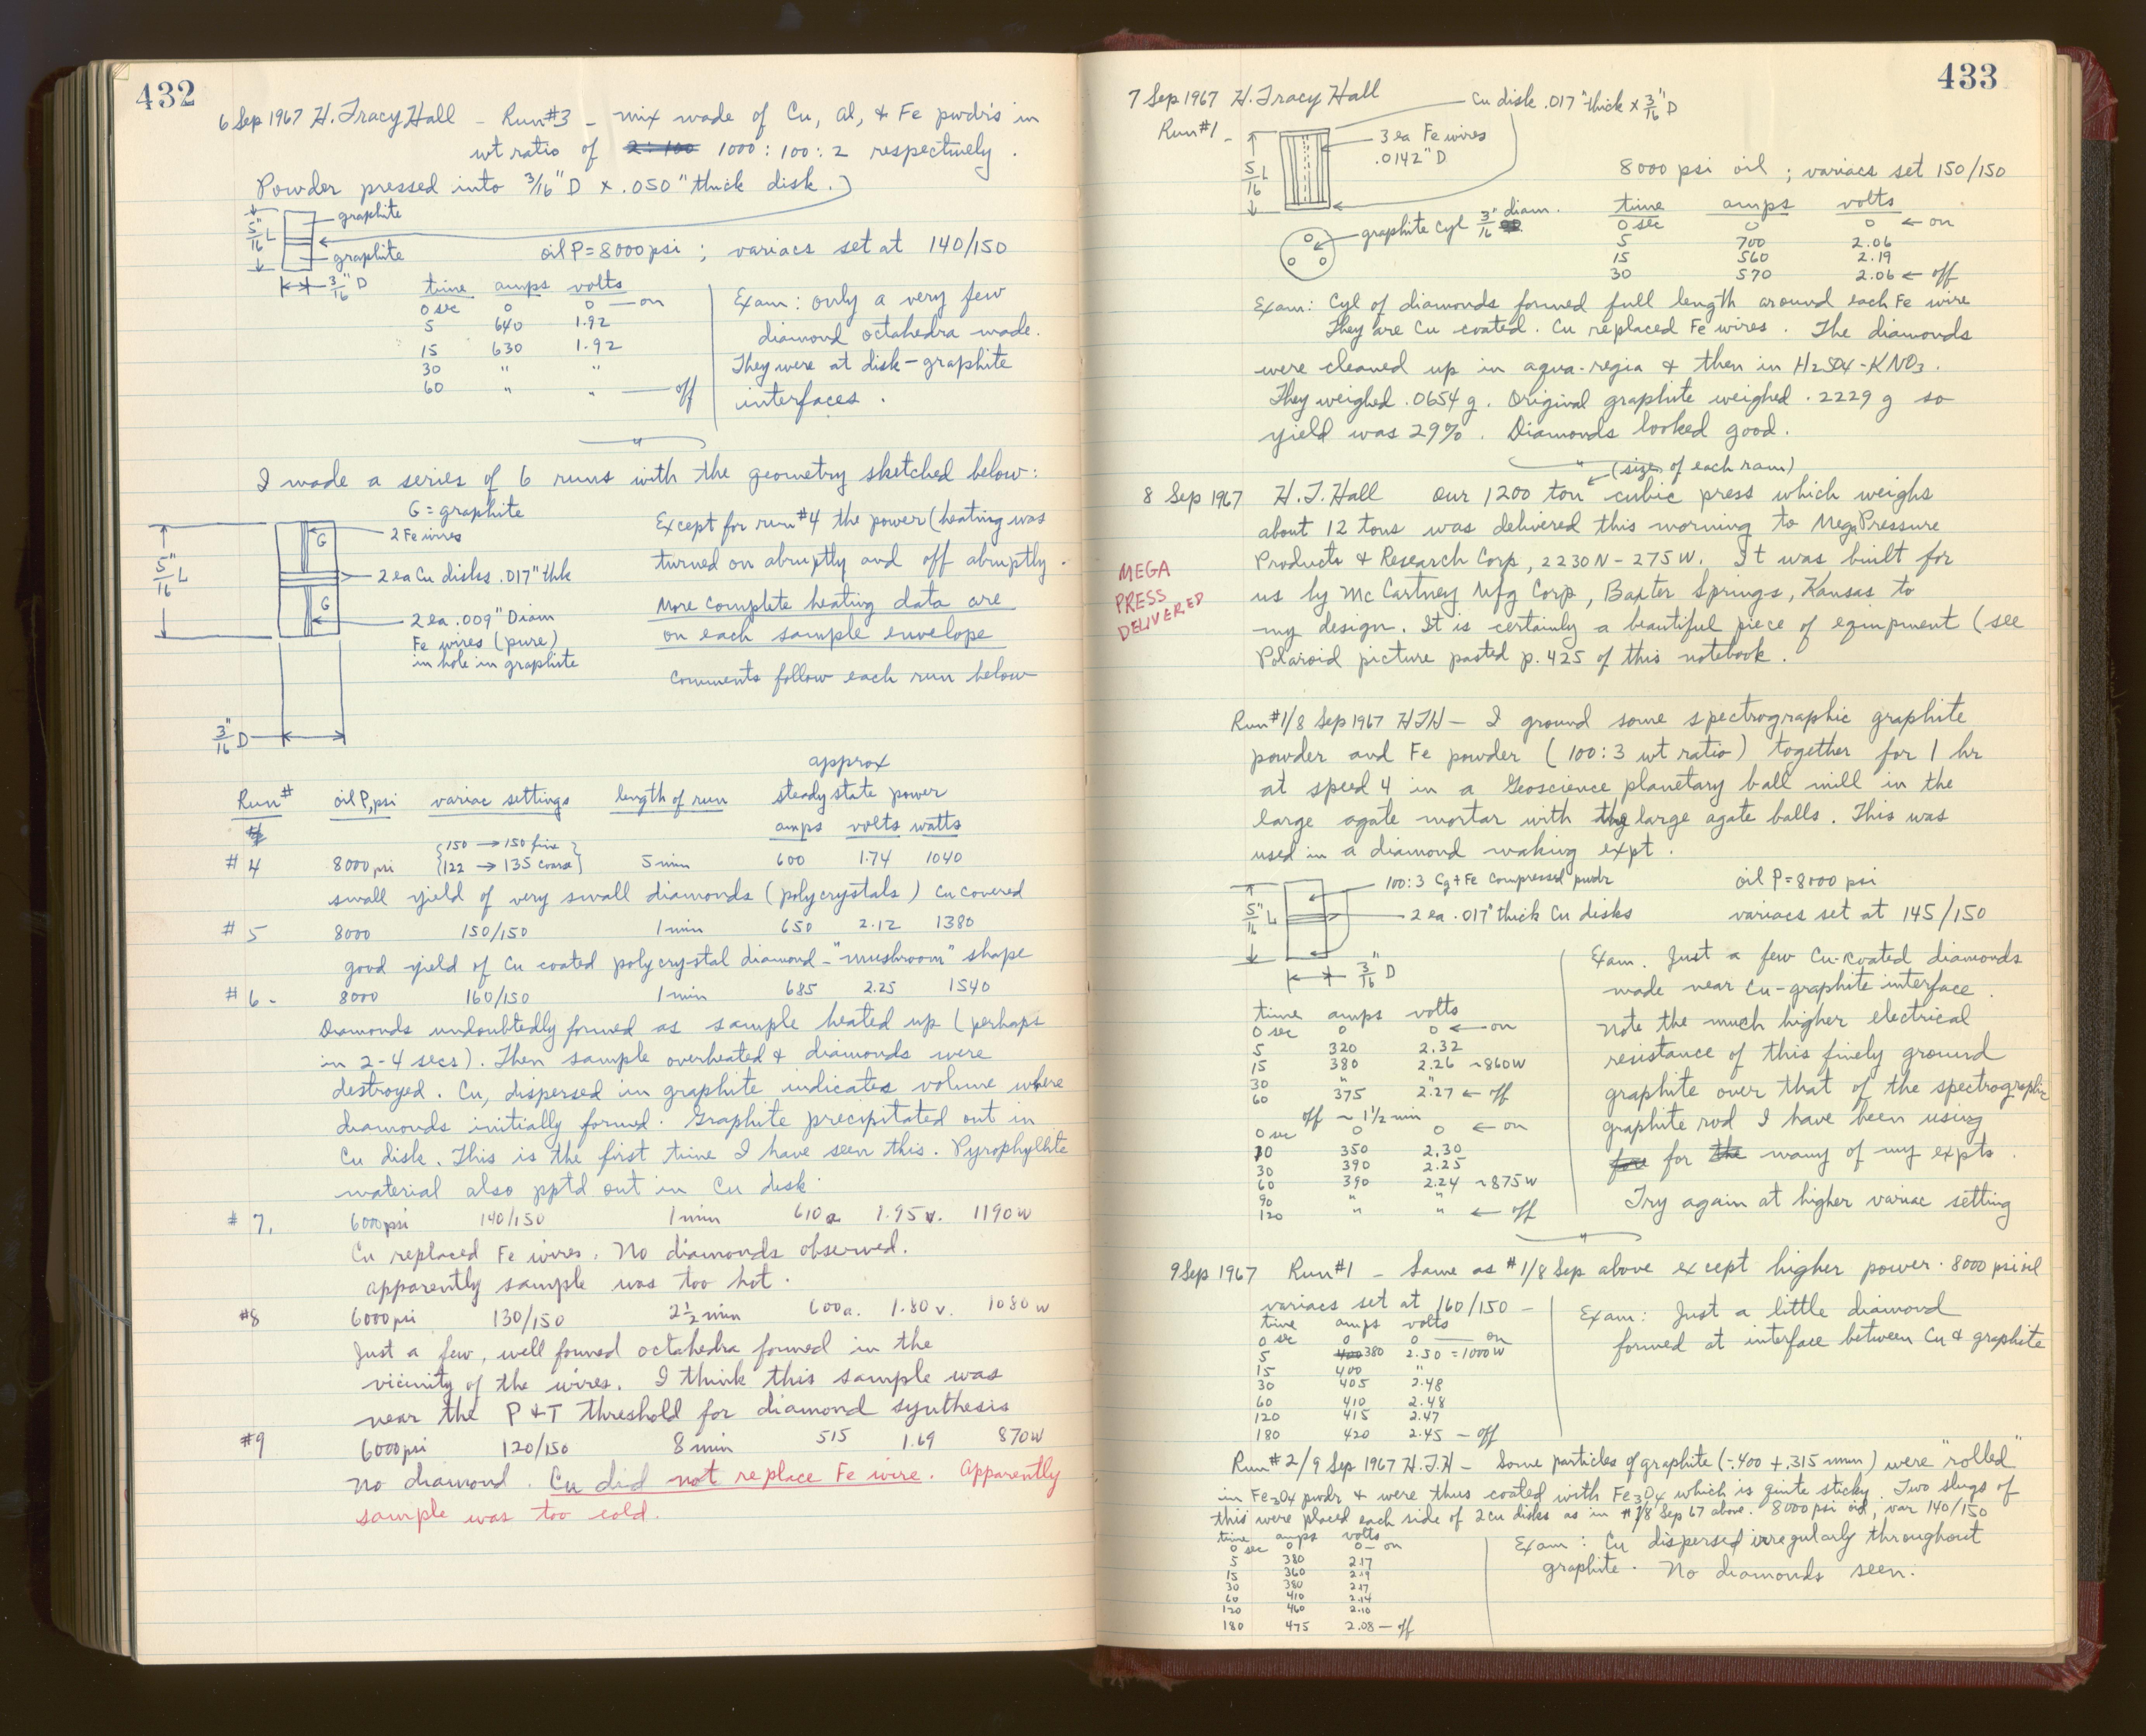 432
6 Sep 1967 H. Tracy Hall - Run #3 - mix made of Cu, Al, & Fe pwdr's in
wt ratio of 1000 : 100 : 2 respectively.
Powder pressed into 3/16" D x .050" thick disk.
graphite
5/16" L
graphite
3/16" D
oil P = 8000 psi ; variacs set at 140/150
time amps volts
0 sec 0 0 — on
5 640 1.92
15 630 1.92
30 " "
60 " " — off
Exam : only a very few
diamond octahedra made.
They were at disk-graphite
interfaces.
"
I made a series of 6 runs with the geometry sketched below:
G = graphite
G
2 Fe wires
5/16" L
2 ea Cu disks .017" thk
G
2 ea .009" Diam
Fe wires (pure)
in hole in graphite
3/16" D
Except for run #4 the power (heating was
turned on abruptly and off abruptly.
More complete heating data are
on each sample envelope
Comments follow each run below
approx
Run # oil P, psi variac settings length of run steady state power
amps volts watts
#4 8000 psi {150 → 150 fine} {122 → 135 coarse} 5 min 600 1.74 1040
small yield of very small diamonds (polycrystals) Cu covered
#5 8000 150/150 1 min 650 2.12 1380
good yield of Cu coated polycrystal diamond - "mushroom" shape
#6 - 8000 160/150 1 min 685 2.25 1540
Diamonds undoubtedly formed as sample heated up (perhaps
in 2-4 secs). Then sample overheated & diamonds were
destroyed. Cu, dispersed in graphite indicates volume where
diamonds initially formed. Graphite precipitated out in
Cu disk. This is the first time I have seen this. Pyrophyllite
material also pptd out in Cu disk.
#7. 6000 psi 140/150 1 min 610 a 1.95 v. 1190 w
Cu replaced Fe wires. No diamonds observed.
apparently sample was too hot.
#8 6000 psi 130/150 2 1/2 min 600 a. 1.80 v. 1080 w
Just a few, well formed octahedra formed in the
vicinity of the wires. I think this sample was
near the P & T threshold for diamond synthesis
#9 6000 psi 120/150 8 min 515 1.69 870 w
No diamond. Cu did not replace Fe wire. Apparently
sample was too cold.
433
7 Sep 1967 H. Tracy Hall
Cu disk .017" thick x 3/16" D
Run #1 -
3 ea Fe wires
.0142" D
5/16" L
graphite cyl 3/16" diam.
8000 psi oil ; variacs set 150/150
time amps volts
0 sec 0 0 ← on
5 700 2.06
15 560 2.19
30 570 2.06 ← off
Exam: Cyl of diamonds formed full length around each Fe wire
They are Cu coated. Cu replaced Fe wires. The diamonds
were cleaned up in aqua-regia & then in H2SO4-KNO3.
They weighed .0654 g. Original graphite weighed .2229 g so
yield was 29%. Diamonds looked good.
"
(size of each ram)
8 Sep 1967 H. T. Hall Our 1200 ton cubic press which weighs
about 12 tons was delivered this morning to MegaPressure
Products & Research Corp, 2230 N - 275 W. It was built for
us by McCartney Mfg Corp, Baxter Springs, Kansas to
my design. It is certainly a beautiful piece of equipment (see
Polaroid picture pasted p. 425 of this notebook.
MEGA
PRESS
DELIVERED
Run #1/8 Sep 1967 HTH - I ground some spectrographic graphite
powder and Fe powder (100:3 wt ratio) together for 1 hr
at speed 4 in a Geoscience planetary ball mill in the
large agate mortar with large agate balls. This was
used in a diamond making expt.
100:3 Cg + Fe compressed pwdr
5/16" L
2 ea .017" thick Cu disks
3/16" D
oil P = 8000 psi
variacs set at 145/150
time amps volts
0 sec 0 0 ← on
5 320 2.32
15 380 2.26 ~860W
30 " "
60 375 2.27 ← off
off ~ 1 1/2 min
0 sec 0 0 ← on
10 350 2.30
30 390 2.25
60 390 2.24 ~875 W
90 " "
120 " " ← off
Exam. Just a few Cu-coated diamonds
made near Cu-graphite interface.
Note the much higher electrical
resistance of this finely ground
graphite over that of the spectrographic
graphite rod I have been using
for many of my expts.
Try again at higher variac setting
"
9 Sep 1967 Run #1 - Same as #1/8 Sep above except higher power. 8000 psi oil
variacs set at 160/150 -
time amps volts
0 sec 0 0 — on
5 380 2.50 = 1000 W
15 400 "
30 405 2.48
60 410 2.48
120 415 2.47
180 420 2.45 — off
Exam: Just a little diamond
formed at interface between Cu & graphite
Run #2/9 Sep 1967 H.T.H - Some particles of graphite (-.400 +.315 mm) were "rolled"
in Fe3O4 pwdr & were thus coated with Fe3O4 which is quite sticky. Two slugs of
this were placed each side of 2 Cu disks as in #1/8 Sep 67 above. 8000 psi oil, var 140/150
time amps volts
0 sec 0 0 — on
5 380 2.17
15 360 2.19
30 380 2.17
60 410 2.14
120 460 2.10
180 475 2.08 — off
Exam : Cu dispersed irregularly throughout
graphite. No diamonds seen.